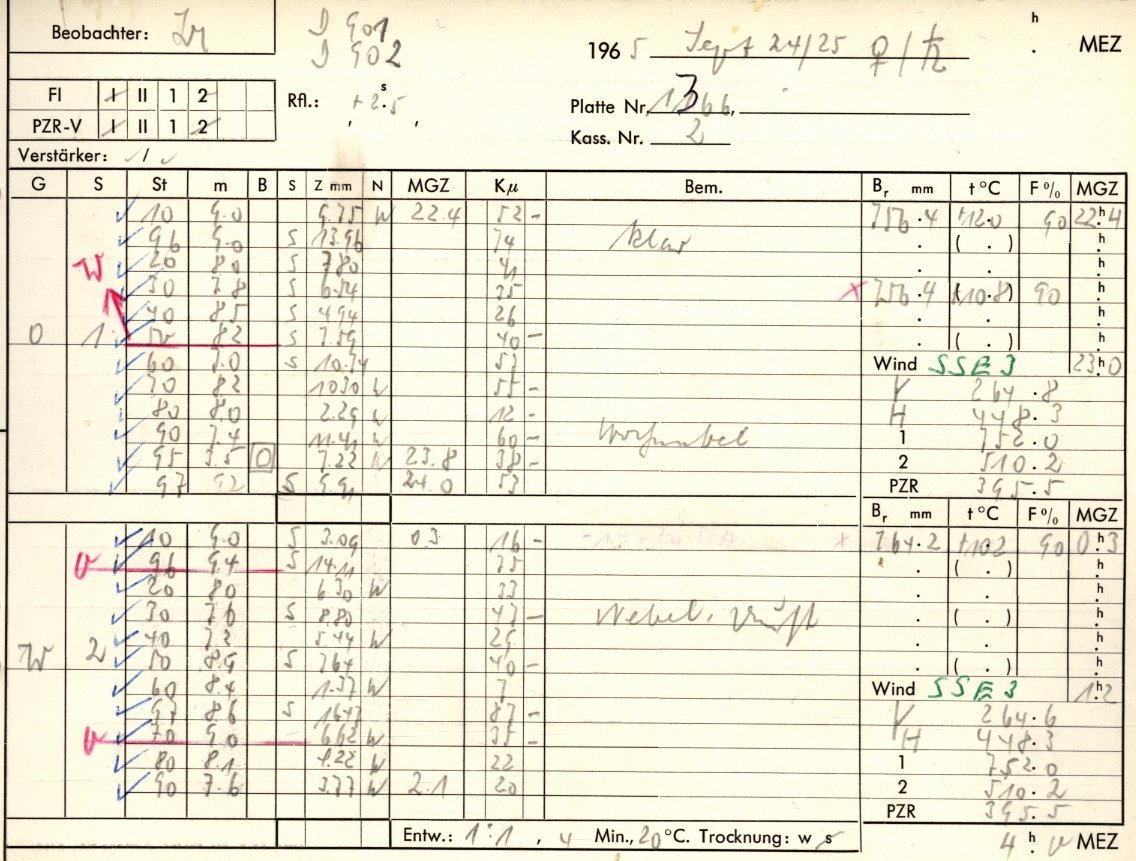 Beobachter:
D 901
D 902
1965 Sept 24/25 ♀/♄ h . MEZ
FI I II 1 2
PZR-V I II 1 2
Rfl.: +2.5 s
Platte Nr. 1366,
Kass. Nr. 2
Verstärker: /
G S St m B S Z mm N MGZ Kµ Bem. Br mm t°C F% MGZ
10 9.0 9.75 W 22.4 52 – 756.4 +12.0 90 22h4
96 9.0 S 13.96 74 klar
20 8.0 S 7.80 41
W 30 7.8 S 6.54 35 x 756.4 (10.8) 90
40 8.5 S 4.94 26
O 1 50 8.2 S 7.59 40 –
60 S 10.34 Wind SSE 3 23h0
70 8.2 10.30 W 55 – V 264.8
80 8.0 2.29 W 12 – H 448.3
90 7.4 11.41 W 60 – 1 752.0
95 3.5 O 7.22 W 23.8 38 – 2 510.2
97 9.2 S 9.91 24.0 53 PZR 395.5
Br mm t°C F% MGZ
10 9.0 S 3.09 0.3 16 – x 764.2 +10.2 90 0h3
v 96 9.4 S 14.11 75
20 8.0 6.30 W 33
30 7.6 S 8.80 47 – Nebel,
40 7.2 5.44 W 29
W 2 50 8.9 S 7.64 40 –
60 8.4 1.37 W 7 Wind SSE 3 1h2
97 8.6 S 16.47 87 – V 264.6
v 70 9.0 6.62 W 35 – H 448.3
80 8.1 4.22 W 22 1 752.0
90 7.6 3.77 W 2.1 20 2 510.2
PZR 395.5
Entw.: 1:1, 4 Min., 20°C. Trocknung: w s 4 h MEZ